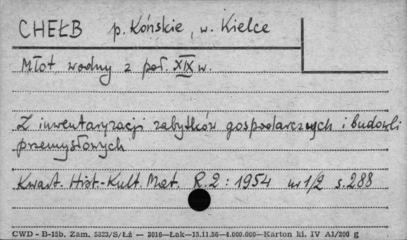 CHEŁB p. Końskie, w. Kielce
Młot wodny z poł. XIX w.
Z inwentaryzacji zabytków gospodarczych i budowli
przemysłowych
Kwart. Hist.-Kult. Mat. R. 2: 1954 nr 1/2 s. 288
CWD - B-15b. Zam. 5323/S/Łź — 2016—Łak—13.11.56—4.000.000—Karton kl. IV A1/200 g